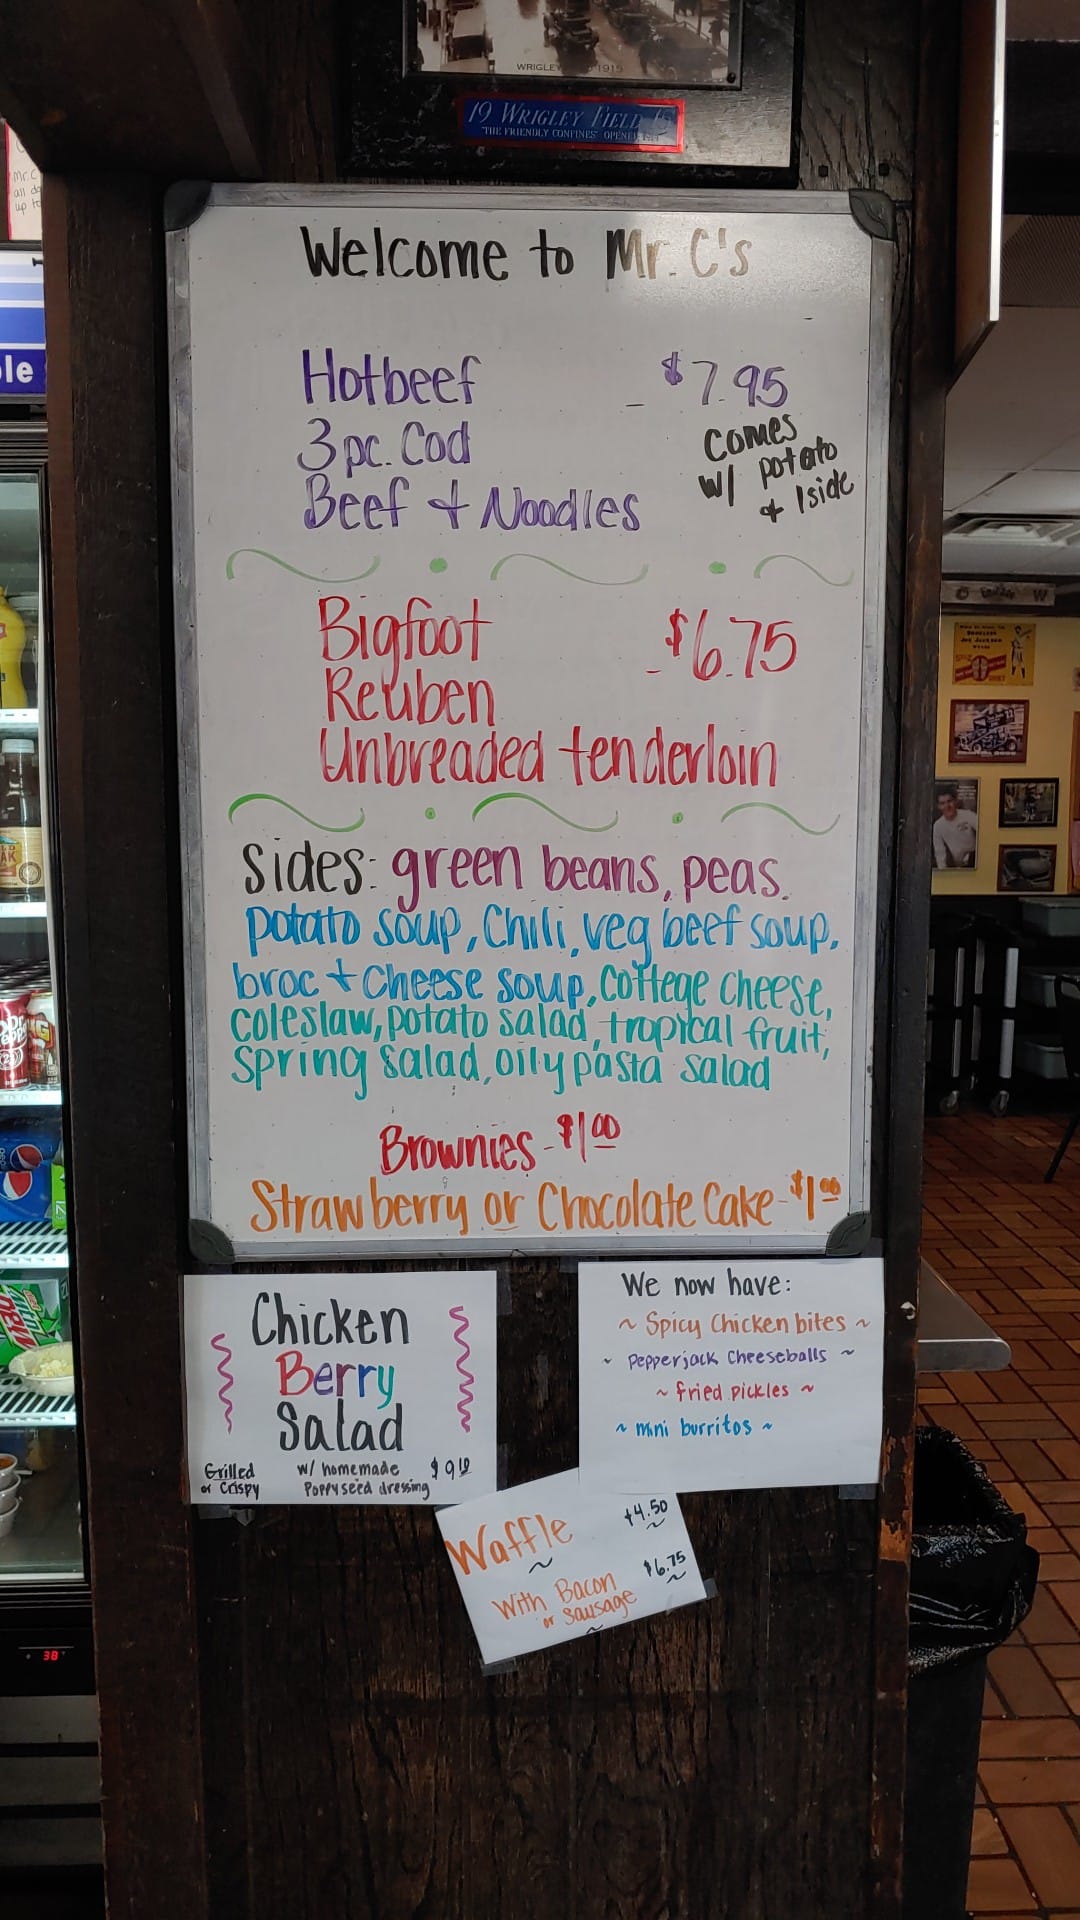 WRIGLEY
1915
19 WRIGLEY FIELD 15
"THE FRIENDLY CONFINES" OPENED
Mr. C
all da
up to
Welcome to Mr. C's
Hotbeef - $7.95
3 pc. Cod
Beef + Noodles
comes
w/ potato
+ 1 side
Bigfoot - $6.75
Reuben
Unbreaded tenderloin
Sides: green beans, peas.
potato soup, Chili, veg beef soup,
broc + cheese soup, cottege cheese,
coleslaw, potato salad, tropical fruit,
spring salad, oily pasta salad
Brownies - $1.00
Strawberry or Chocolate Cake - $1.00
Chicken
Berry
Salad
Grilled
or Crispy
w/ homemade
Poppyseed dressing
$9.10
We now have:
~ Spicy Chicken bites ~
~ Pepperjack Cheeseballs ~
~ fried pickles ~
~ mini burritos ~
Waffle $4.50
With Bacon $6.75
or Sausage
ole
Dr
Pepper
23
pepsi
38